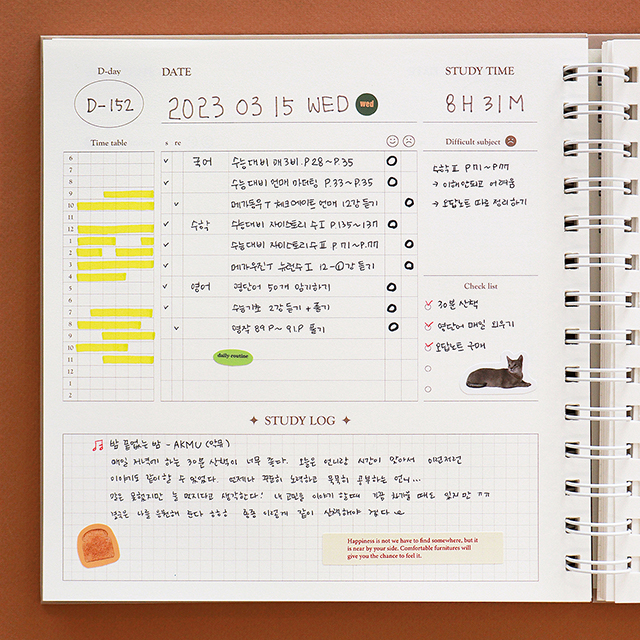 D-day
DATE
STUDY TIME
D-152
2023 03 15 WED wed
8H 31M
Time table
s re
Difficult subject
6
7
8
9
10
11
12
1
2
3
4
5
6
7
8
9
10
11
12
1
2
국어 수능대비 매3비 P.28~P.35
수능대비 언매 마더텅 P.33~P.35
체크메이트 언매 12강 듣기
수학 수능대비 자이스토리 수I P.135~137
수능대비 자이스토리 수II P.71~P.77
뉴런수I 12-⑥강 듣기
영어 영단어 50개 암기하기
수능기초 2강 듣기 + 풀기
영작 89P~91P 풀기
daily routine
수학II P.71~P.77
→ 이해 안되고 어려움
→ 오답노트 따로 정리하기
Check list
30분 산책
영단어 매일 외우기
오답노트 구매
STUDY LOG
밤 끝없는 밤 - AKMU (악뮤)
매일 저녁에 하는 30분 산책이 너무 좋다. 오늘은 언니랑 시간이 맞아서 이런저런
이야기도 같이할 수 있었다. 언제나 꾸준히 노력하고 묵묵히 공부하는 언니...
말은 못했지만 늘 멋지다고 생각한다! 내 고민을 이야기 할때 가끔 화가날 때도 있지만 ㅋㅋ
결국은 나를 응원해 준다 하하 종종 이렇게 같이 산책해야 겠다
Happiness is not we have to find somewhere, but it
is near by your side. Comfortable furnitures will
give you the chance to feel it.